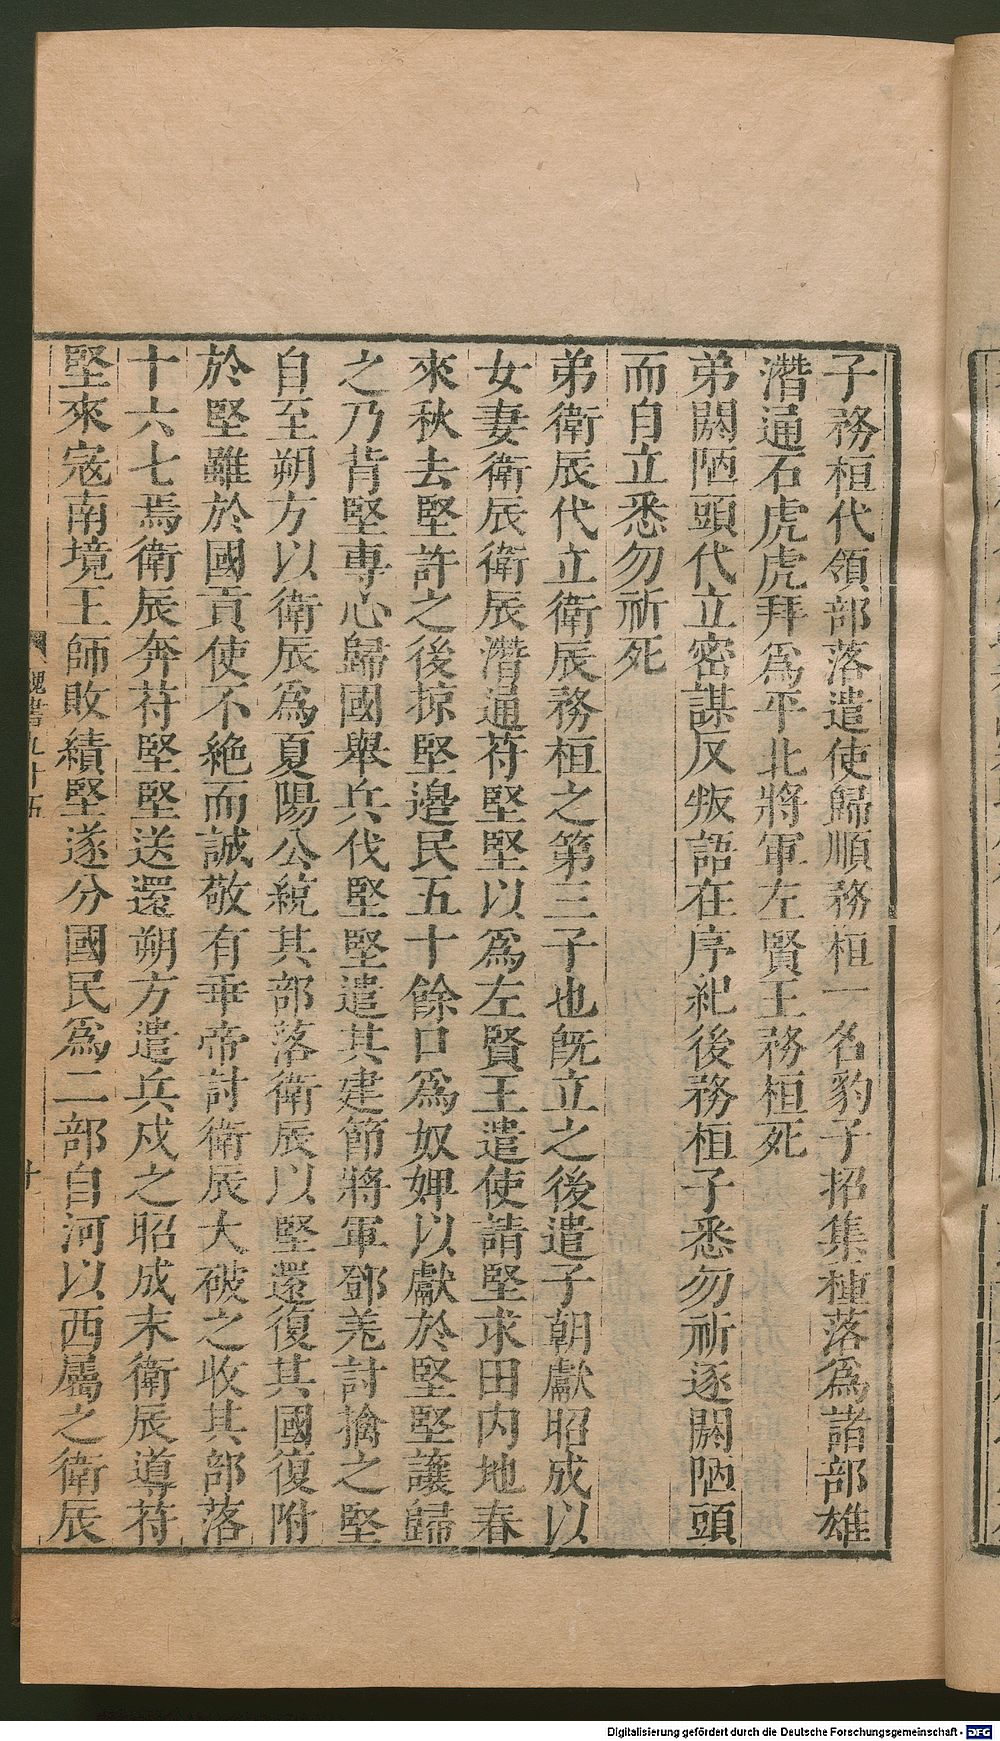 子務桓代領部落遣使歸順務桓一名豹子招集種落爲諸部雄
潛通石虎虎拜爲平北將軍左賢王務桓死
弟閼陋頭代立密謀反叛語在序紀後務桓子悉勿祈逐閼陋頭
而自立悉勿祈死
弟衛辰代立衛辰務桓之第三子也旣立之後遣子朝獻昭成以
女妻衛辰衛辰潛通苻堅堅以爲左賢王遣使請堅求田内地春
來秋去堅許之後掠堅邊民五十餘口爲奴婢以獻於堅堅讓歸
之乃背堅專心歸國舉兵伐堅堅遣其建節將軍鄧羌討擒之堅
自至朔方以衛辰爲夏陽公統其部落衛辰以堅還復其國復附
於堅雖於國貢使不絶而誠敬有乖帝討衛辰大破之收其部落
十六七焉衛辰奔苻堅堅送還朔方遣兵戍之昭成末衛辰導苻
堅來宼南境王師敗績堅遂分國民爲二部自河以西屬之衛辰
魏書九十五
十
Digitalisierung gefördert durch die Deutsche Forschungsgemeinschaft - DFG